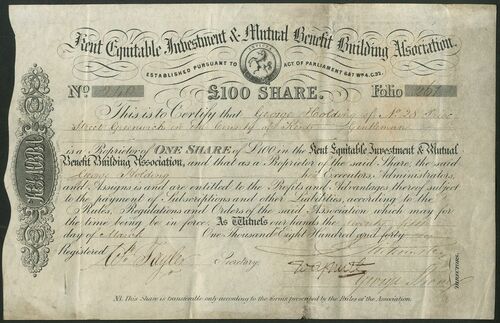 Kent Equitable Investment & Mutual Benefit Building Association.
ESTABLISHED PURSUANT TO ACT OF PARLIAMENT 6&7 Wm 4. C.32.
No Folio
£100 SHARE.
This is to Certify that George Holding of No 28
Street Greenwich in the County of Kent Gentleman
is a Proprietor of ONE SHARE of £100 in the Kent Equitable Investment & Mutual
Benefit Building Association, and that as a Proprietor of the said Share, the said
George Holding his Executors, Administrators,
and Assigns is and are entitled to the Profits and Advantages thereof subject
to the payment of Subscriptions and other Liabilities, according to the
Rules, Regulations and Orders of the said Association which may for
the time being be in force. As Witness our hands the
day of March One Thousand Eight Hundred and forty
Registered Secretary.
DIRECTORS.
N.B. This Share is transferable only according to the forms prescribed by the Rules of the Association.